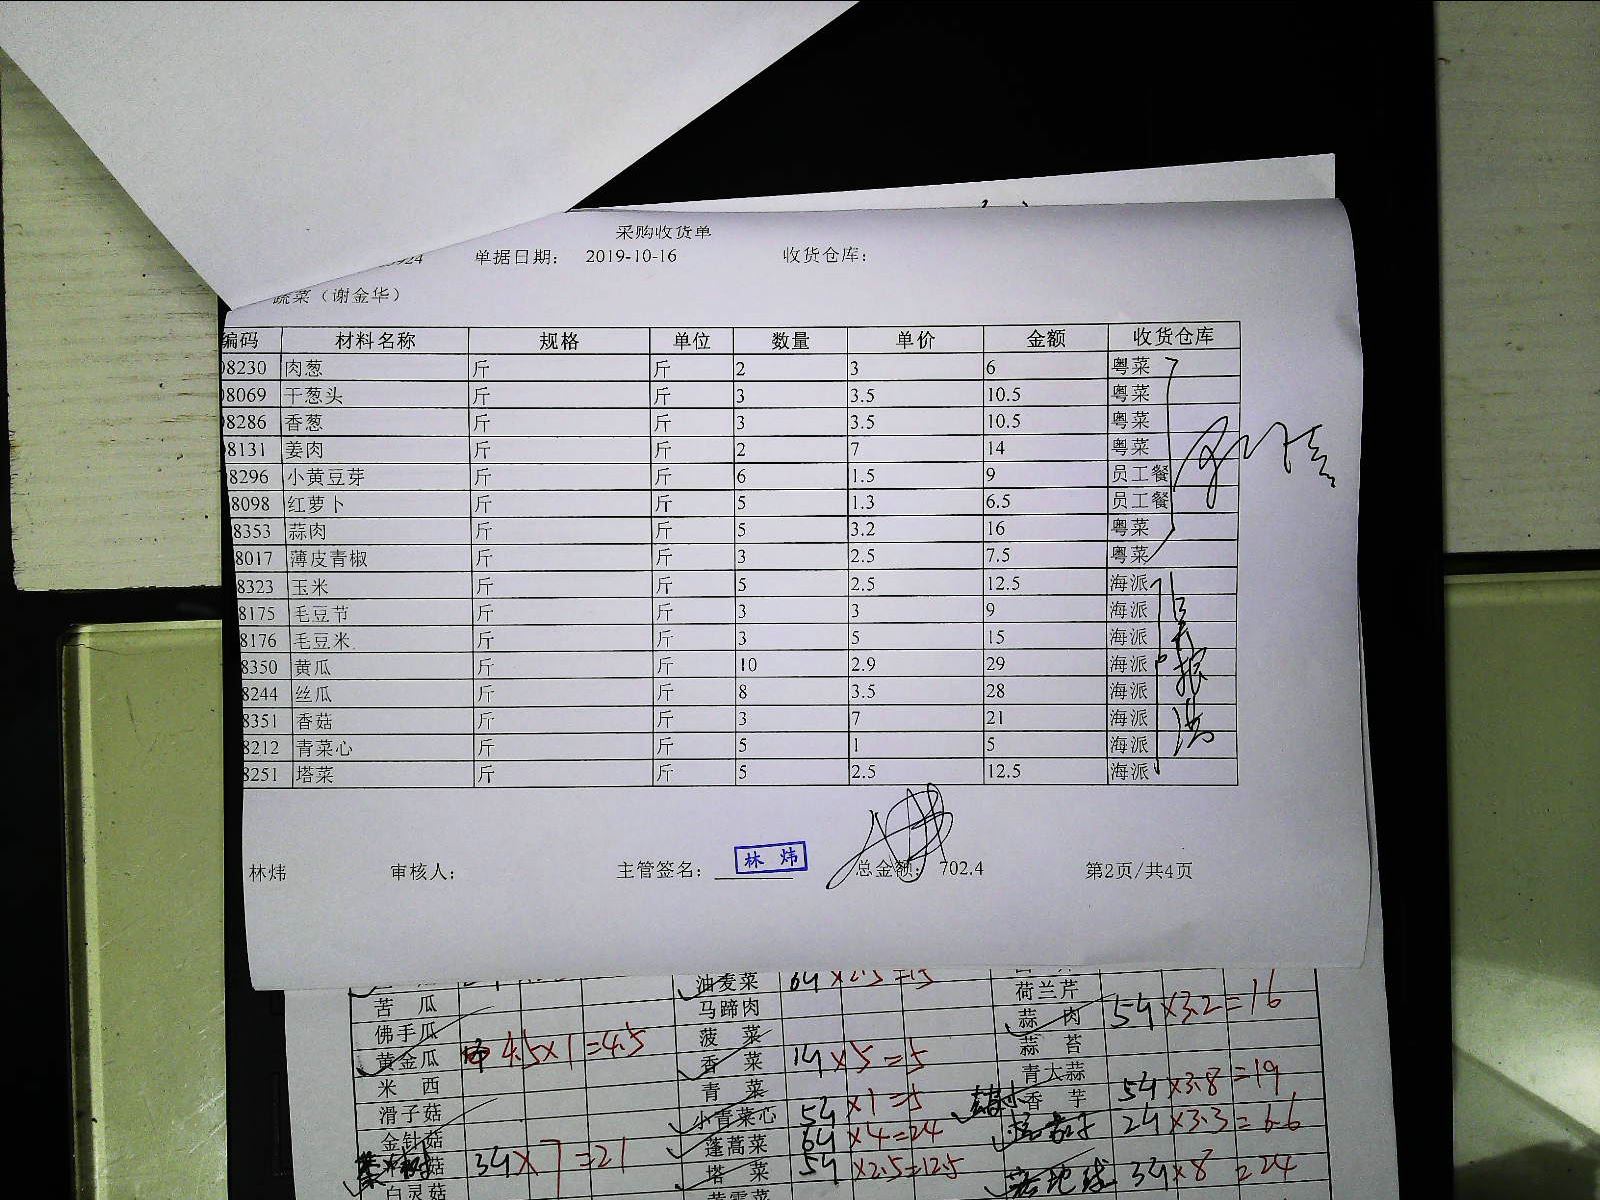 采购收货单
单据日期： 2019-10-16 收货仓库：
蔬菜（谢金华）
编码 材料名称 规格 单位 数量 单价 金额 收货仓库
8230 肉葱 斤 斤 2 3 6 粤菜
8069 干葱头 斤 斤 3 3.5 10.5 粤菜
8286 香葱 斤 斤 3 3.5 10.5 粤菜
8131 姜肉 斤 斤 2 7 14 粤菜
8296 小黄豆芽 斤 斤 6 1.5 9 员工餐
8098 红萝卜 斤 斤 5 1.3 6.5 员工餐
8353 蒜肉 斤 斤 5 3.2 16 粤菜
8017 薄皮青椒 斤 斤 3 2.5 7.5 粤菜
8323 玉米 斤 斤 5 2.5 12.5 海派
8175 毛豆节 斤 斤 3 3 9 海派
8176 毛豆米 斤 斤 3 5 15 海派
8350 黄瓜 斤 斤 10 2.9 29 海派
8244 丝瓜 斤 斤 8 3.5 28 海派
8351 香菇 斤 斤 3 7 21 海派
8212 青菜心 斤 斤 5 1 5 海派
8251 塔菜 斤 斤 5 2.5 12.5 海派
林炜 审核人： 主管签名： 林炜 总金额： 702.4 第2页/共4页
油麦菜 荷兰芹
苦瓜 马蹄肉 蒜肉 5斤×3.2=16
佛手瓜 菠菜 蒜苔
黄金瓜 4.5×1=4.5 香菜 1斤×5=5 青大蒜
米西 青菜 香芋 5斤×3.8=19
滑子菇 小青菜心 5斤×1=5 2斤×3.3=6.6
金针菇 蓬蒿菜 6斤×4=24
菇 3斤×7=21 塔菜 5斤×2.5=12.5 3斤×8=24
白灵菇